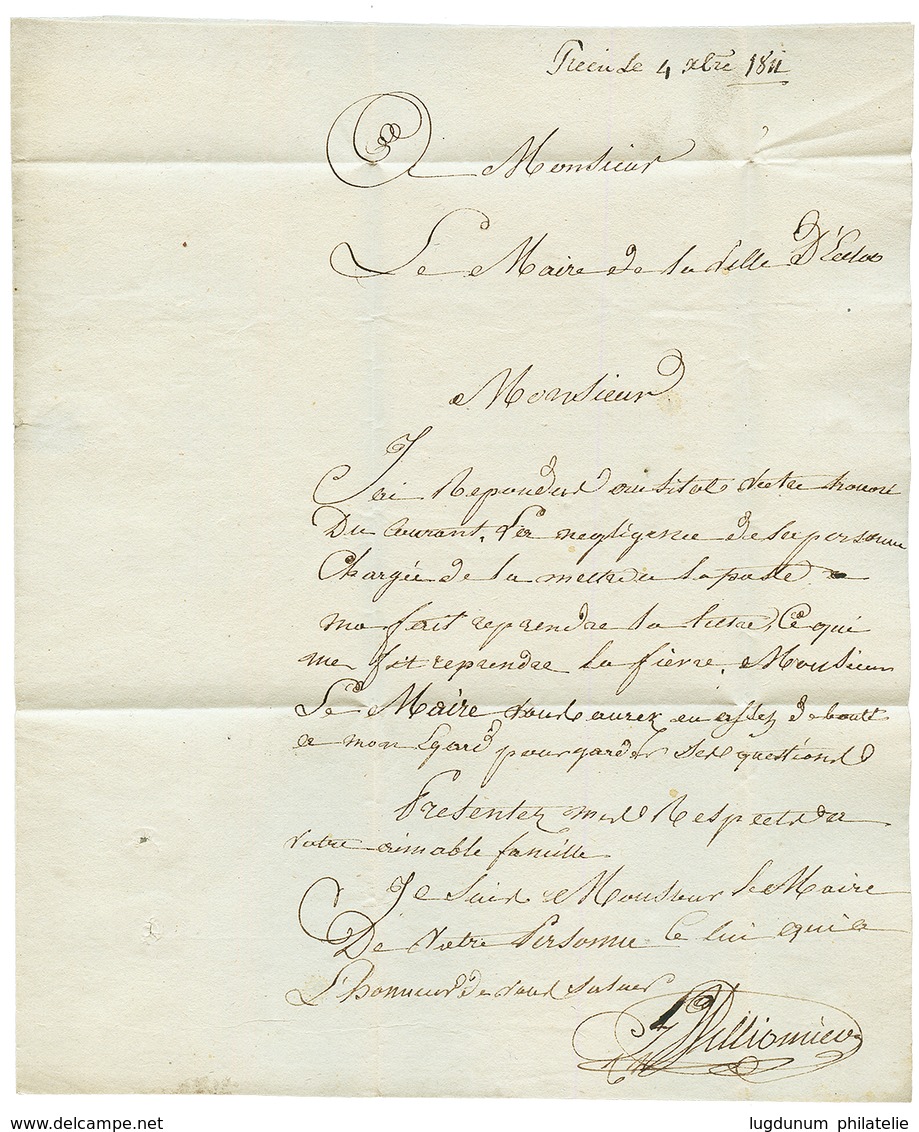 le 4 xbre 1811
Monsieur
Le Maire de la ville D'
Monsieur
J'ai Repondus ausitot votre
Du Courant. Par negligence de la personne
Chargée de la mettre a la poste
ma fait reprendre la lettre, Ce qui
me fit reprendre la fievre. Monsieur
Le Maire vous aurez eu assez de bonté
a mon Egard pour garder Des questions
Presentez mes Respects a
votre aimable famille
Je suis Monsieur le Maire
De Votre Personne Celui qui a
L'honneur de vous saluer